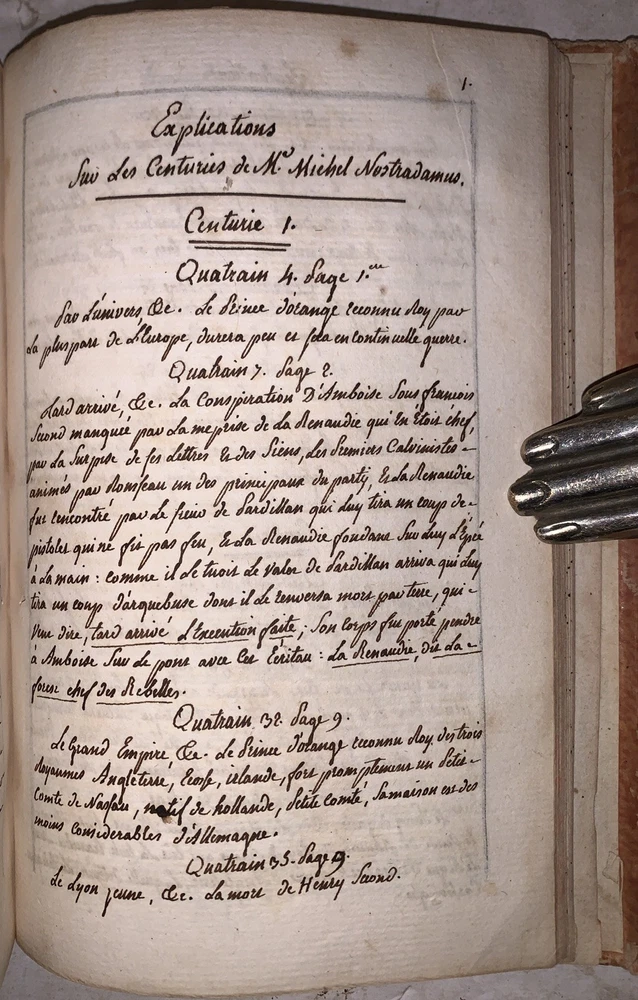 1.
Explications
Sur Les Centuries de Mr. Michel Nostradamus.
Centurie 1.
Quatrain 4. Page 1.ere
Par L'univers, &c. Le Prince d'orange reconnu Roy par
La pluspart de L'Europe, durera peu et sera en continuelle guerre.
Quatrain 7. Page 2.
Tard arrivé, &c. La Conspiration D'Amboise Sous françois
Second manquée par La meprise de La Renaudie qui En Etois chef,
par La Surprise de ses Lettres & des Siens, Les Premiers Calvinistes -
animés par Rousseau un des principaux du party, & La Renaudie
fut rencontré par Le sieur de Pardillan qui Luy tira un coup de -
pistolet qui ne fit pas feu, & La Renaudie fondant Sur Luy L'Epée
à La main : comme il Le tuoit Le Valet de Pardillan arriva qui Luy
tira un coup d'arquebuse dont il Le renversa mort par terre, qui -
Veut dire, tard arrivé L'Execution faite ; Son corps fut porté pendre
à Amboise Sur Le pont avec Cet Ecritau : La Renaudie, dit La -
forest chef des Rebelles.
Quatrain 32. Page 9.
Le Grand Empire, &c. Le Prince d'orange reconnu Roy des trois
Royaumes Angleterre, Ecosse, irlande, fort promptement un Petit -
Comte de Nassau, natif de hollande, Petite Comté, Sa maison est des
moins Considerables d'Allemagne.
Quatrain 35. Page 9.
Le Lyon jeune, &c. La mort de Henry Second.